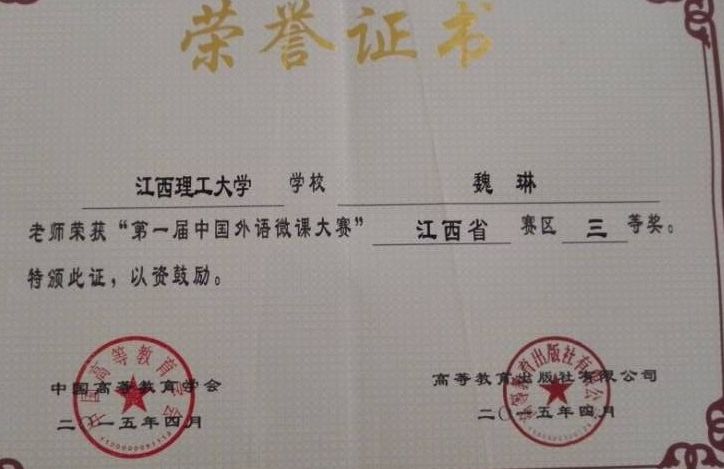 荣誉证书
江西理工大学 学校 魏琳
老师荣获“第一届中国外语微课大赛” 江西省 赛区 三 等奖。
特颁此证，以资鼓励。
中国高等教育学会
二〇一五年四月
高等教育出版社有限公司
二〇一五年四月
中国高等教育学会
高等教育出版社有限公司